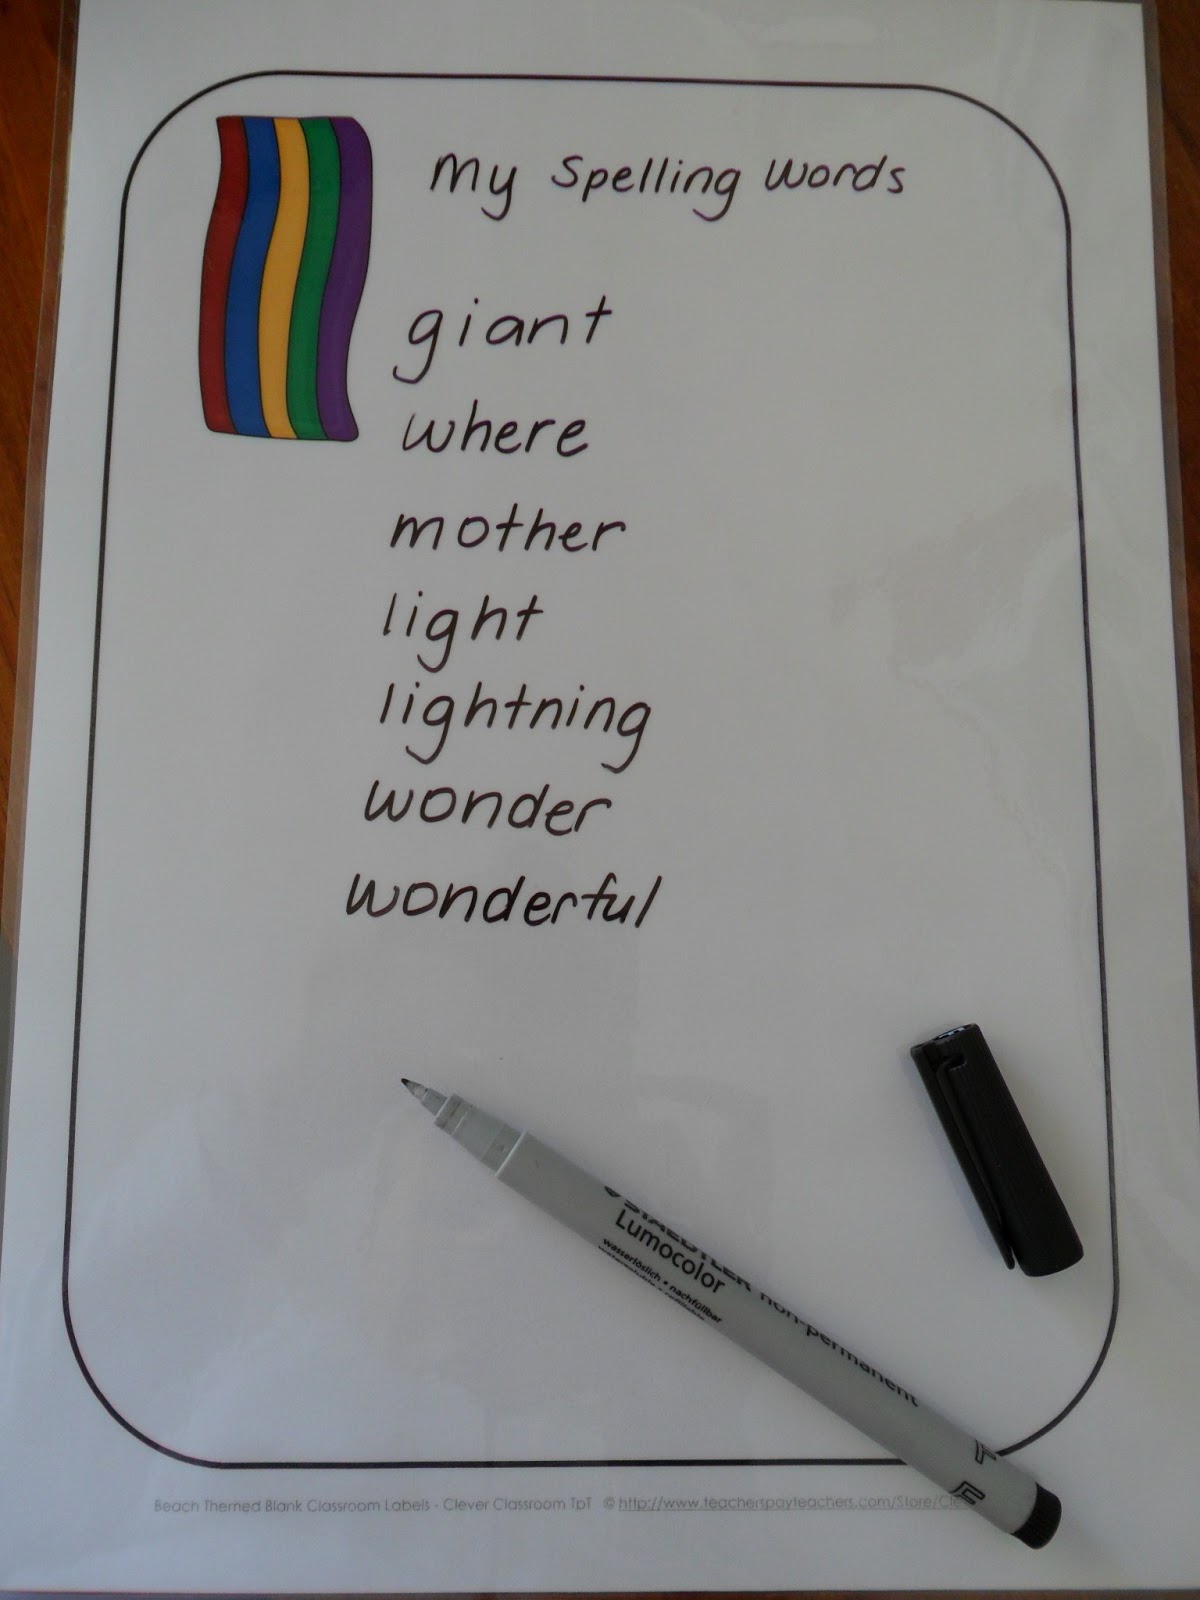 My Spelling Words
giant
where
mother
light
lightning
wonder
wonderful
STAEDTLER
Lumocolor
non-permanent
wasserlöslich • nachfüllbar
F
Beach Themed Blank Classroom Labels - Clever Classroom TpT © http://www.teacherspayteachers.com/Store/Cle